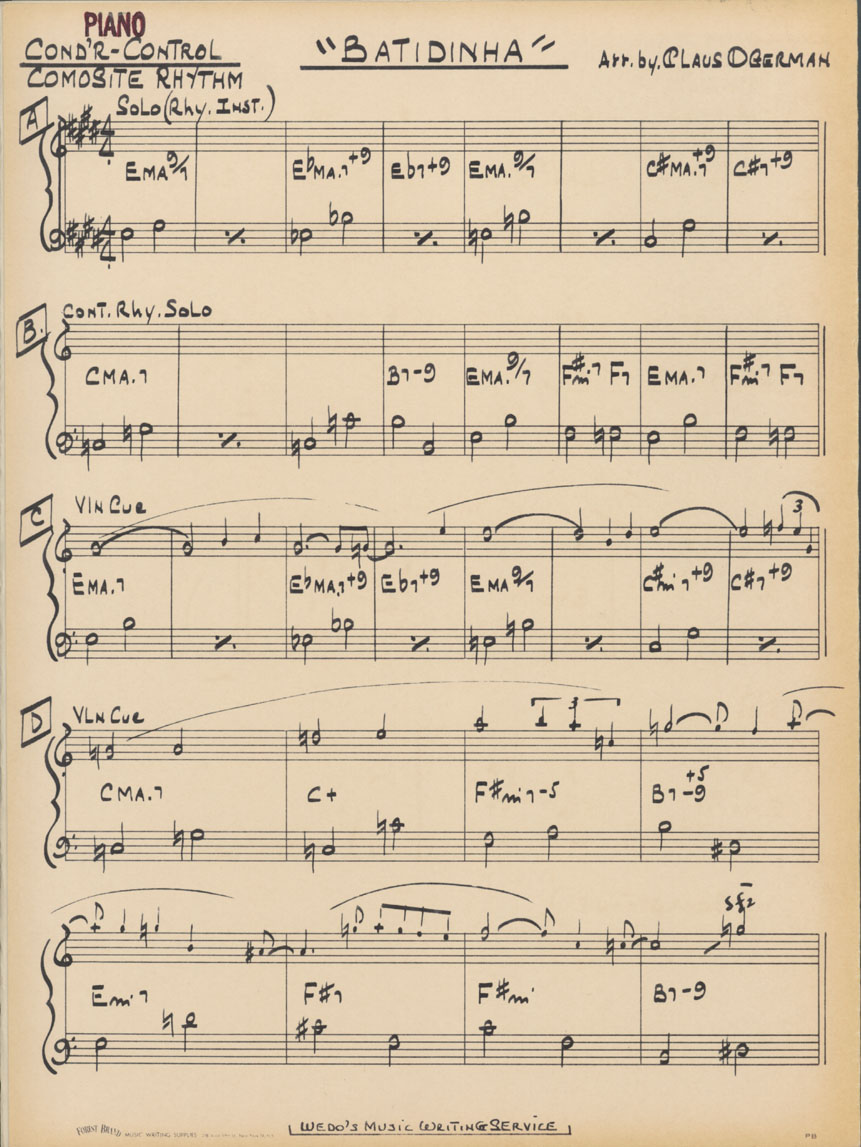 PIANO
COND'R-CONTROL
"BATIDINHA"
Arr. by. CLAUS OGERMAN
COMOSITE RHYTHM
A
SOLO (RHY. INST.)
4
EMA9/7 EbMA.7+9 Eb7+9 EMA.9/7 C#MA.7+9 C#7+9
4
B.
CONT. RHY. SOLO
CMA.7 B7-9 EMA.9/7 F#mi7 F7 EMA.7 F#mi7 F7
C
VLN CUE
3
EMA.7 EbMA.7+9 Eb7+9 EMA9/7 C#mi7+9 C#7+9
D
VLN CUE
3
CMA.7 C+ F#mi7-5 B7-9+5
sfz
Emi7 F#7 F#mi B7-9
FOREST BRAND MUSIC WRITING SUPPLIES
WEDO'S MUSIC WRITING SERVICE